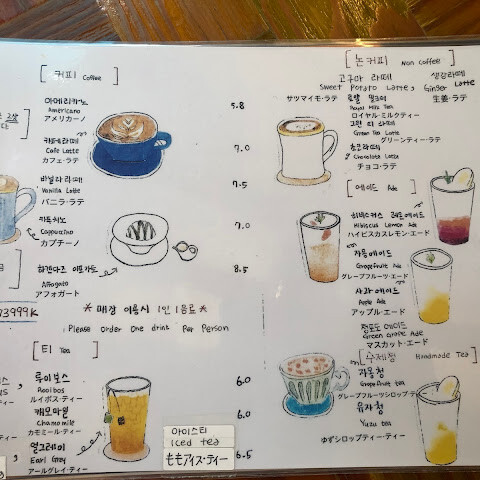 [ 커피 Coffee ]
아메리카노
Americano
アメリカーノ
5.8
카페라떼
Cafe Latte
カフェ・ラテ
7.0
바닐라 라떼
Vanilla Latte
バニラ・ラテ
7.5
카푸치노
Cappuccino
カプチーノ
7.0
하겐다즈 아포가토
Affogato
アフォガート
8.5
3999K
* 매장 이용시 1인 1음료 *
Please Order One drink Per Person
[ 티 Tea ]
루이보스
Rooibos
ルイボス・ティー
6.0
캐모마일
Chamomile
カモミール・ティー
6.0
얼그레이
Earl Grey
アールグレイ・ティー
아이스티
iced tea
ももアイス・ティー
6.5
[ 논커피 Non Coffee ]
고구마 라떼
Sweet Potato Latte,
サツマイモ・ラテ
생강라떼
Ginger Latte
生姜・ラテ
로얄 밀크티
Royal Milk Tea
ロイヤル・ミルクティー
그린 티 라떼
Green Tea Latte
グリーンティー・ラテ
초코라떼
Chocolate Latte
チョコ・ラテ
[ 에이드 Ade ]
히비스커스 레몬에이드
Hibiscus Lemon Ade
ハイビスカスレモン・エード
자몽에이드
Grapefruit Ade
グレープフルーツ・エード
사과에이드
Apple Ade
アップル・エード
청포도 에이드
Green Grape Ade
マスカット・エード
[ 수제청 Handmade Tea ]
자몽청
Grapefruit tea
グレープフルーツシロップ・テ
유자청
Yuzu tea
ゆずシロップティー・ティー